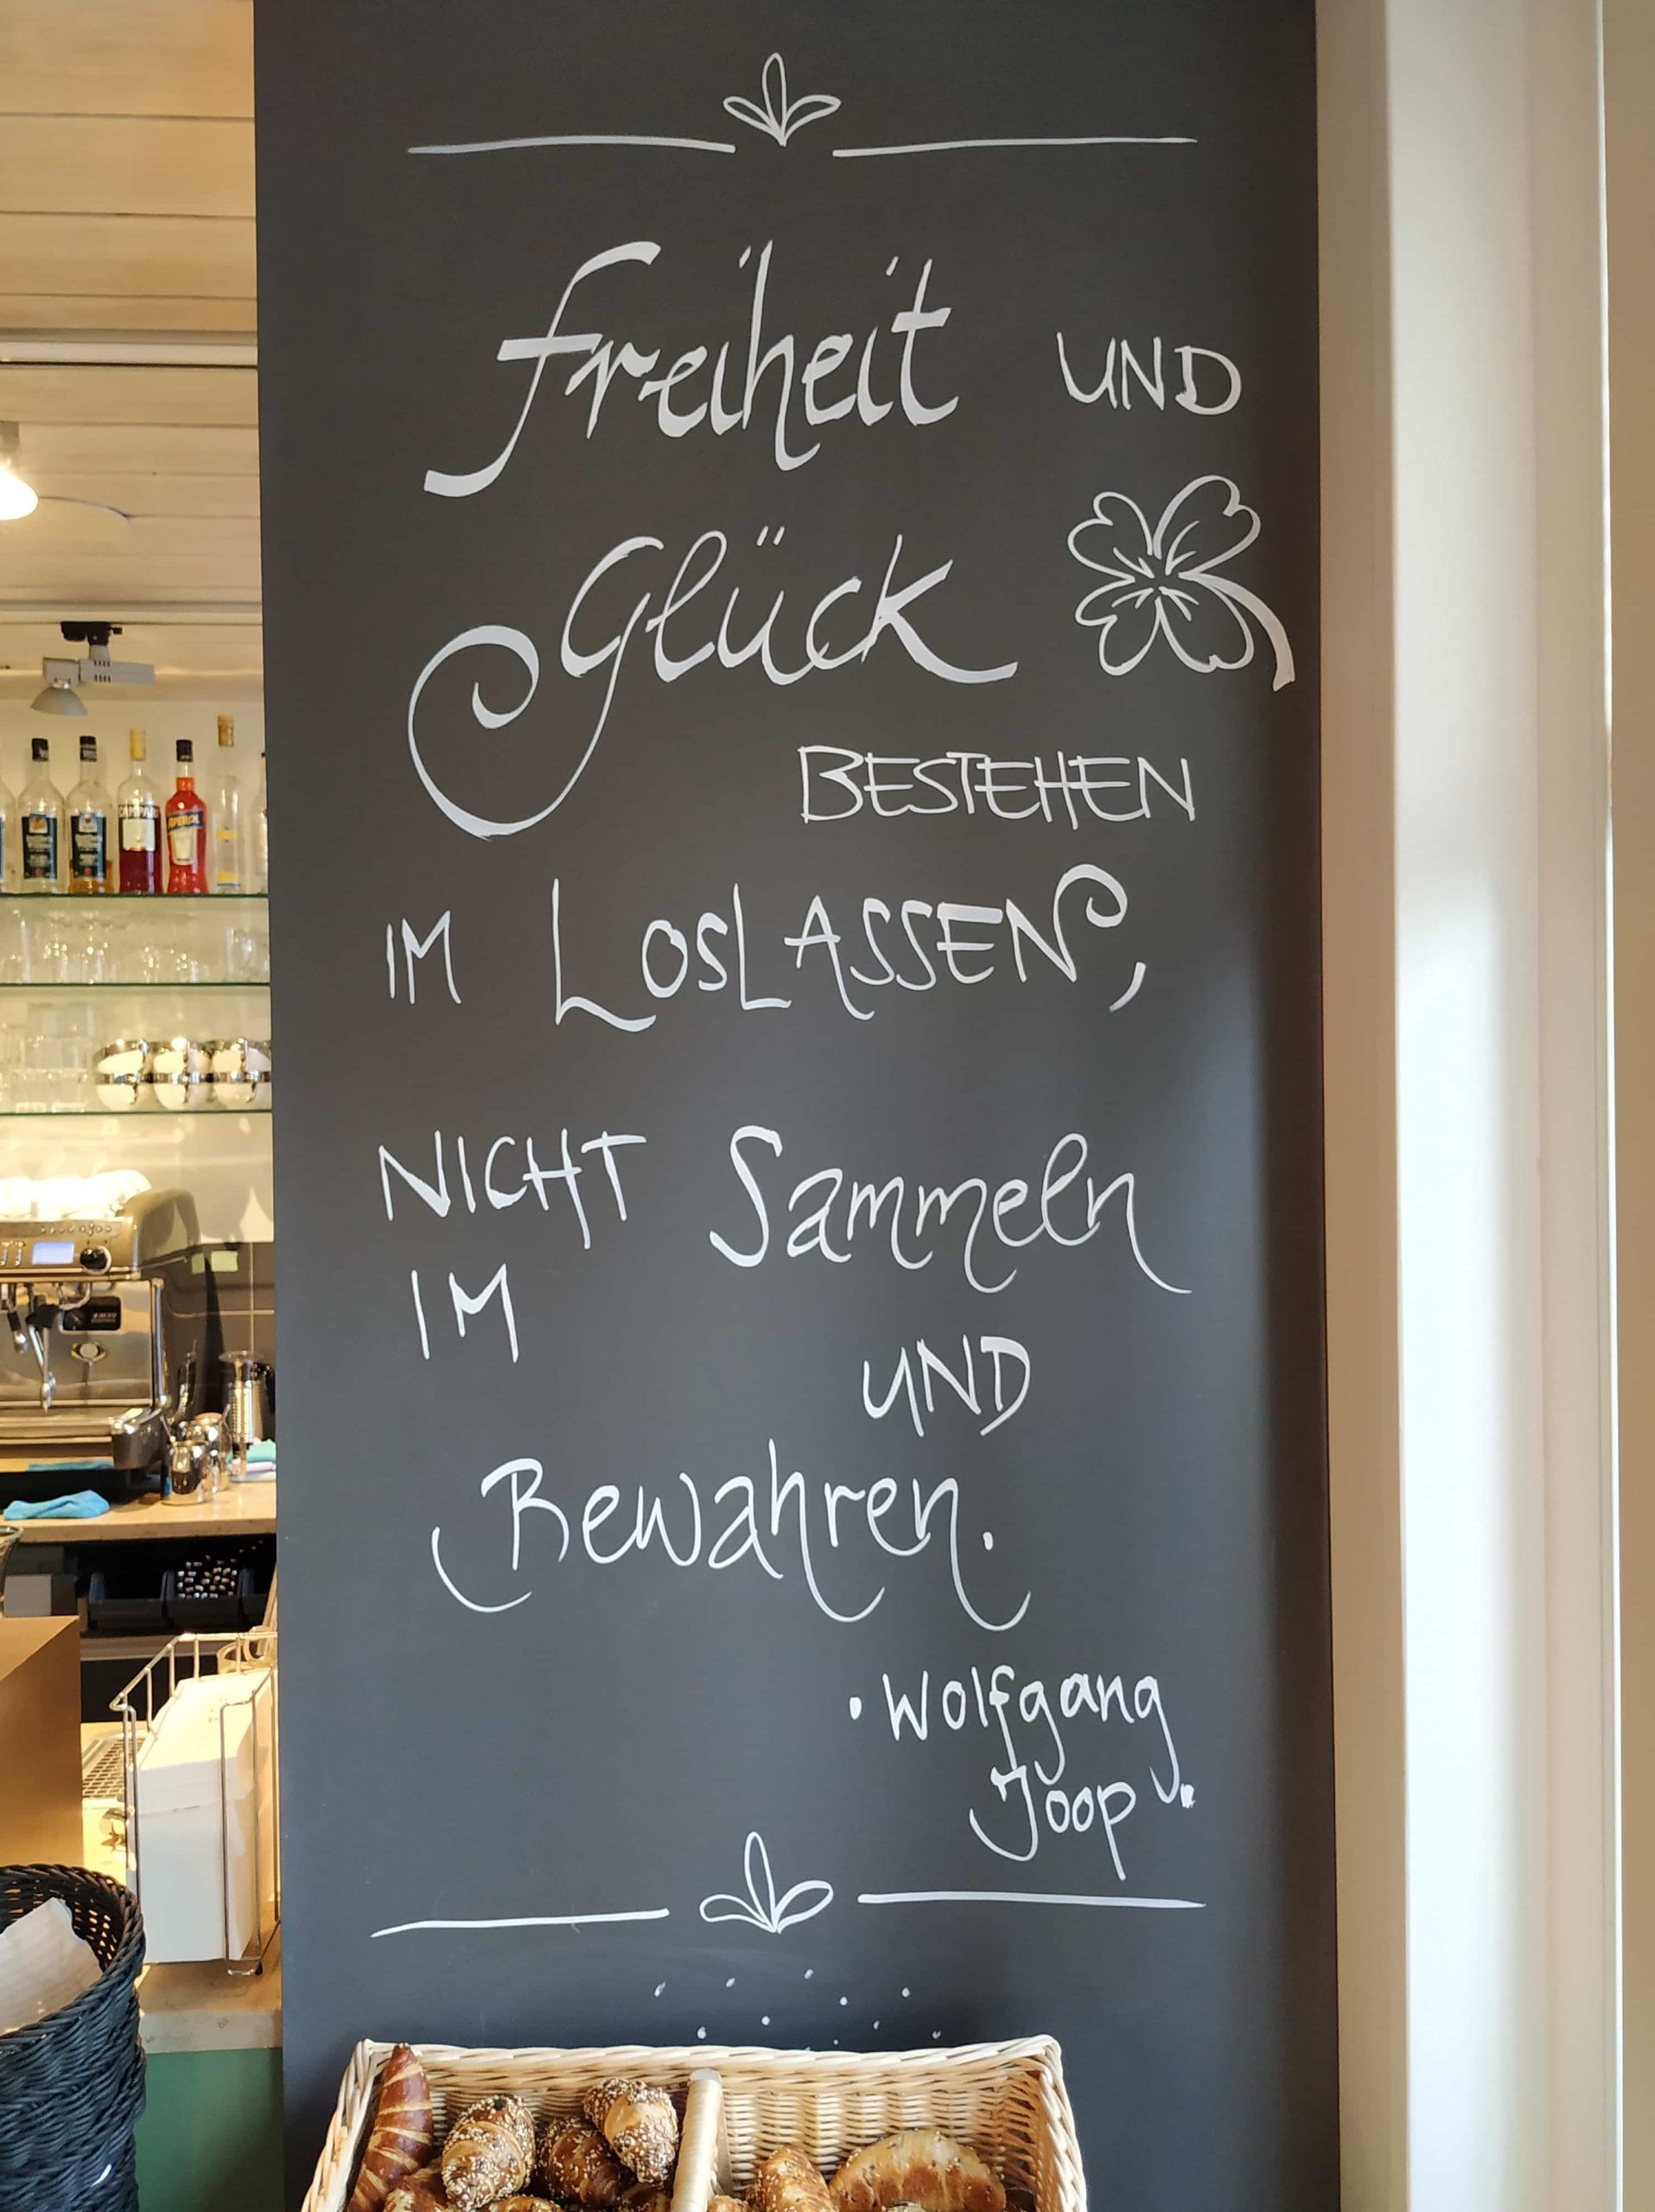 freiheit UND
Glück
BESTEHEN
IM LOSLASSEN,
NICHT Sammeln
IM
UND
Bewahren.
· Wolfgang
Joop.
CAMPARI
APEROL